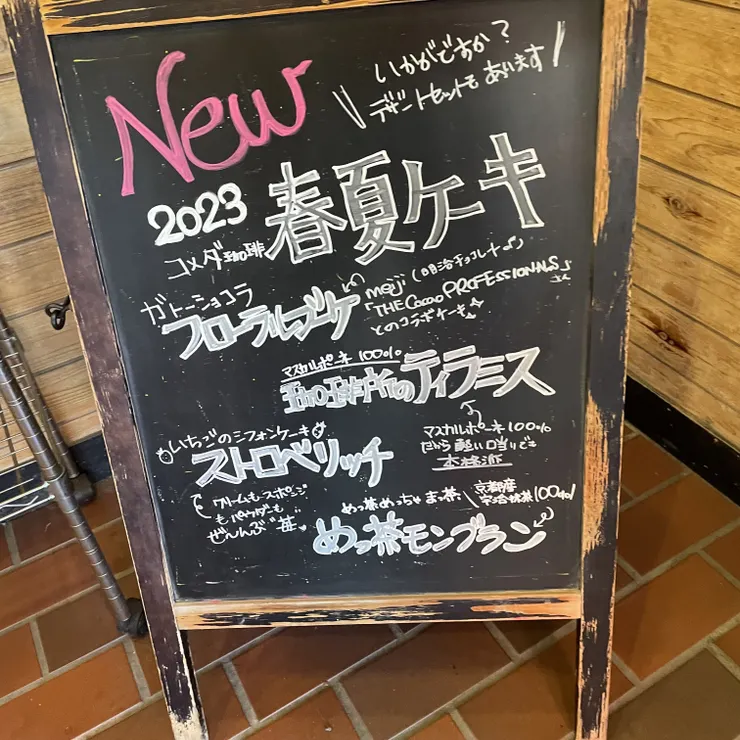 New
いかがですか?
デザートセットもあります
2023
コメダ珈琲
春夏ケーキ
ガトーショコラ
フローラルブーケ
meiji(明治チョコレート)
「THE Cacao PROFESSIONALS」
とのコラボケーキ
マスカルポーネ100%
珈琲所のティラミス
マスカルポーネ100%
だから軽い口当りでも
本格派
いちごのシフォンケーキ
ストロベリッチ
クリームもスポンジ
もパウダーも
ぜんんぶ苺
めっ茶めっちゃま茶
京都産
宇治抹茶100%
めっ茶モンブラン